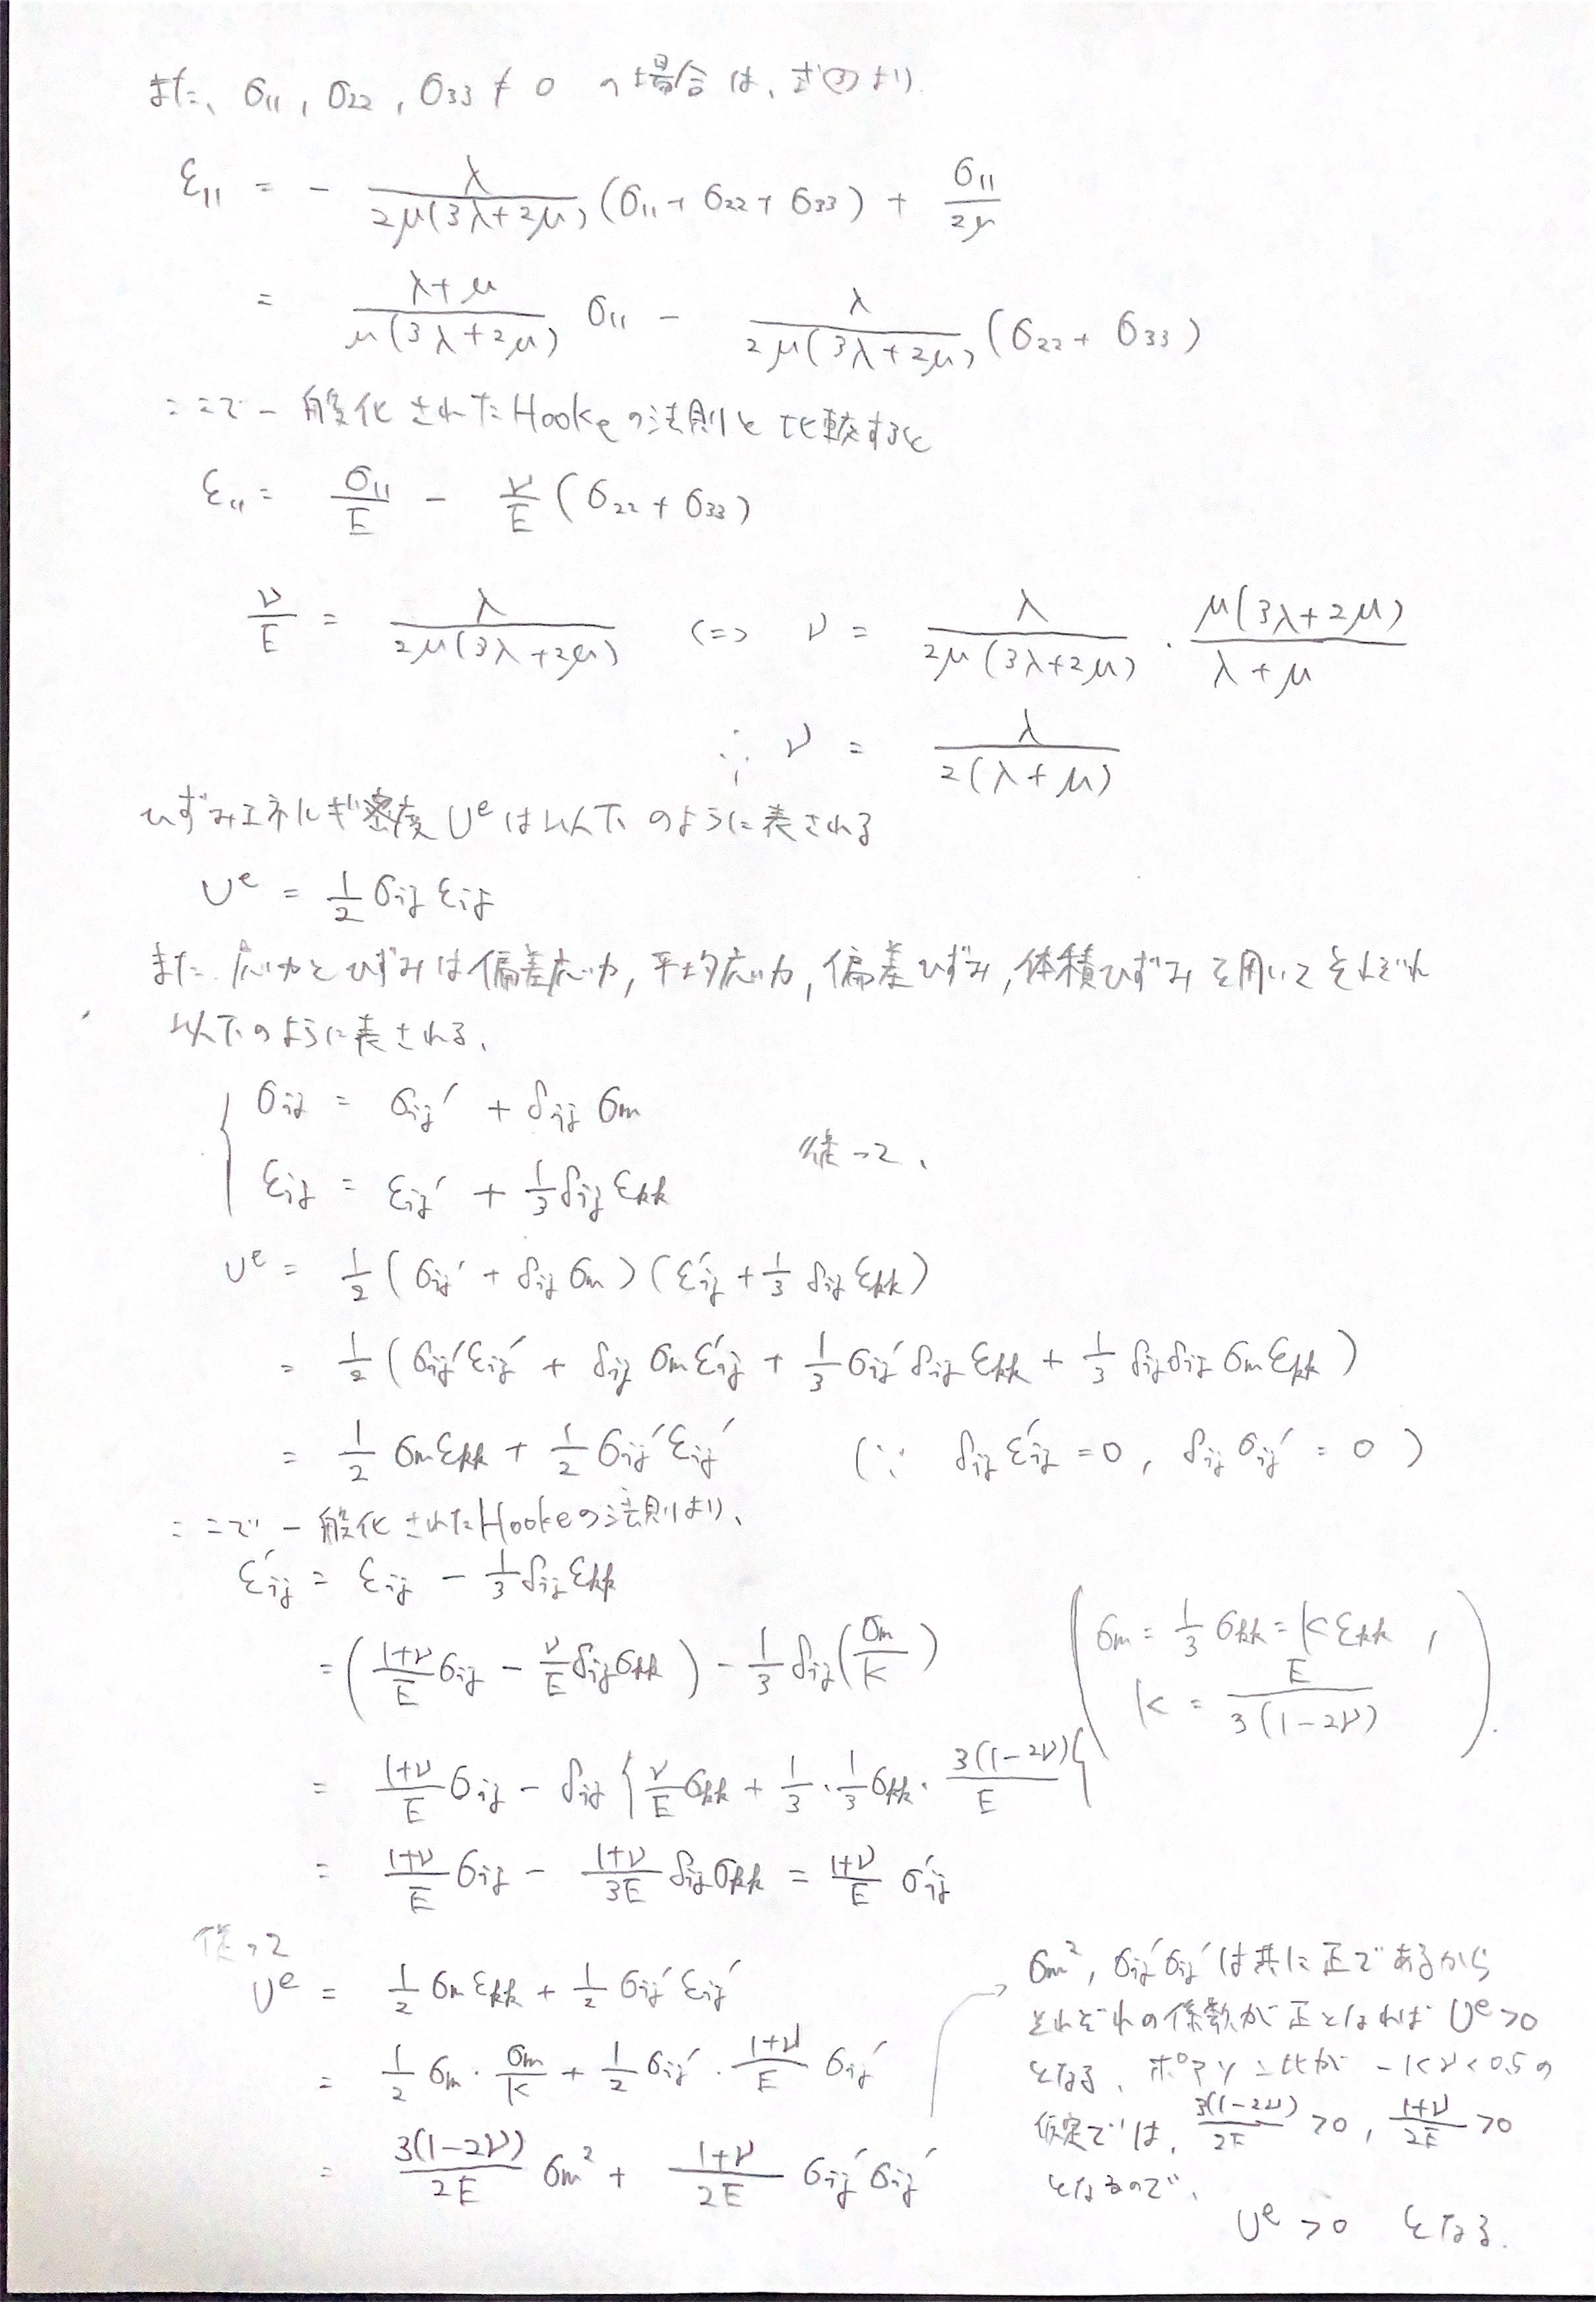 また、σ₁₁, σ₂₂, σ₃₃ ≠ 0 の場合は、式(3)より
ε₁₁ = - λ/(2μ(3λ+2μ)) (σ₁₁ + σ₂₂ + σ₃₃) + σ₁₁/(2μ)
= (λ+μ)/(μ(3λ+2μ)) σ₁₁ - λ/(2μ(3λ+2μ)) (σ₂₂ + σ₃₃)
ここで一般化されたHookeの法則と比較すると
ε₁₁ = σ₁₁/E - ν/E (σ₂₂ + σ₃₃)
ν/E = λ/(2μ(3λ+2μ)) <=> ν = λ/(2μ(3λ+2μ)) · μ(3λ+2μ)/(λ+μ)
∴ ν = λ/(2(λ+μ))
ひずみエネルギ密度 Uᵉ は以下のように表される
Uᵉ = 1/2 σij εij
また、応力とひずみは偏差応力, 平均応力, 偏差ひずみ, 体積ひずみを用いてそれぞれ
以下のように表される、
σij = σij′ + δij σm
εij = εij′ + 1/3 δij εkk
従って、
Uᵉ = 1/2 (σij′ + δij σm)(ε′ij + 1/3 δij εkk)
= 1/2 (σij′εij′ + δij σm ε′ij + 1/3 σij′ δij εkk + 1/3 δij δij σm εkk)
= 1/2 σm εkk + 1/2 σij′ εij′ (∵ δij ε′ij = 0, δij σij′ = 0)
ここで一般化されたHookeの法則より、
ε′ij = εij - 1/3 δij εkk
= ((1+ν)/E σij - ν/E δij σkk) - 1/3 δij (σm/K)
(σm = 1/3 σkk = K εkk ,
K = E/(3(1-2ν)))
= (1+ν)/E σij - δij {ν/E σkk + 1/3 · 1/3 σkk · 3(1-2ν)/E}
= (1+ν)/E σij - (1+ν)/3E δij σkk = (1+ν)/E σ′ij
従って
Uᵉ = 1/2 σm εkk + 1/2 σij′ εij′
= 1/2 σm · σm/K + 1/2 σij′ · (1+ν)/E σij′
= 3(1-2ν)/2E σm² + (1+ν)/2E σij′ σij′
σm², σij′σij′ は共に正であるから
それぞれの係数が正となれば Uᵉ > 0
となる、ポアソン比が -1<ν<0.5の
仮定では、3(1-2ν)/2E > 0, (1+ν)/2E > 0
となるので、
Uᵉ > 0 となる.